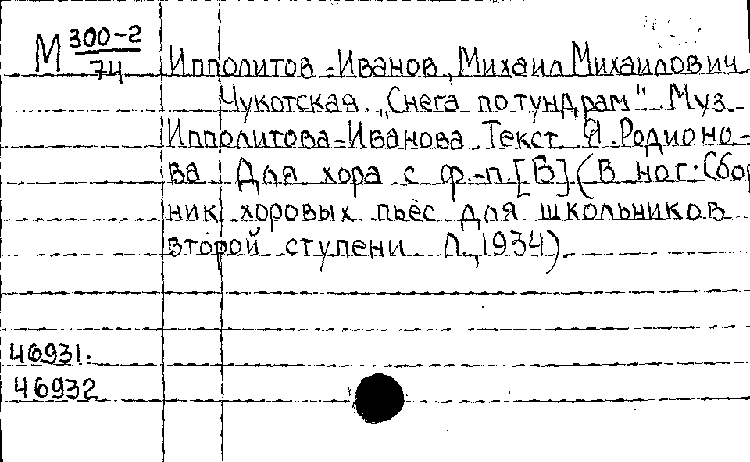 М 300-2
74
Ипполитов-Иванов, Михаил Михайлович
Чукотская. „Снега по тундрам". Муз.
Ипполитова-Иванова. Текст Я. Родионо-
ва. Для хора с ф.-п. [В] (В нот. Сбор
ник хоровых пьес для школьников
второй ступени Л., 1934).
46931.
46932